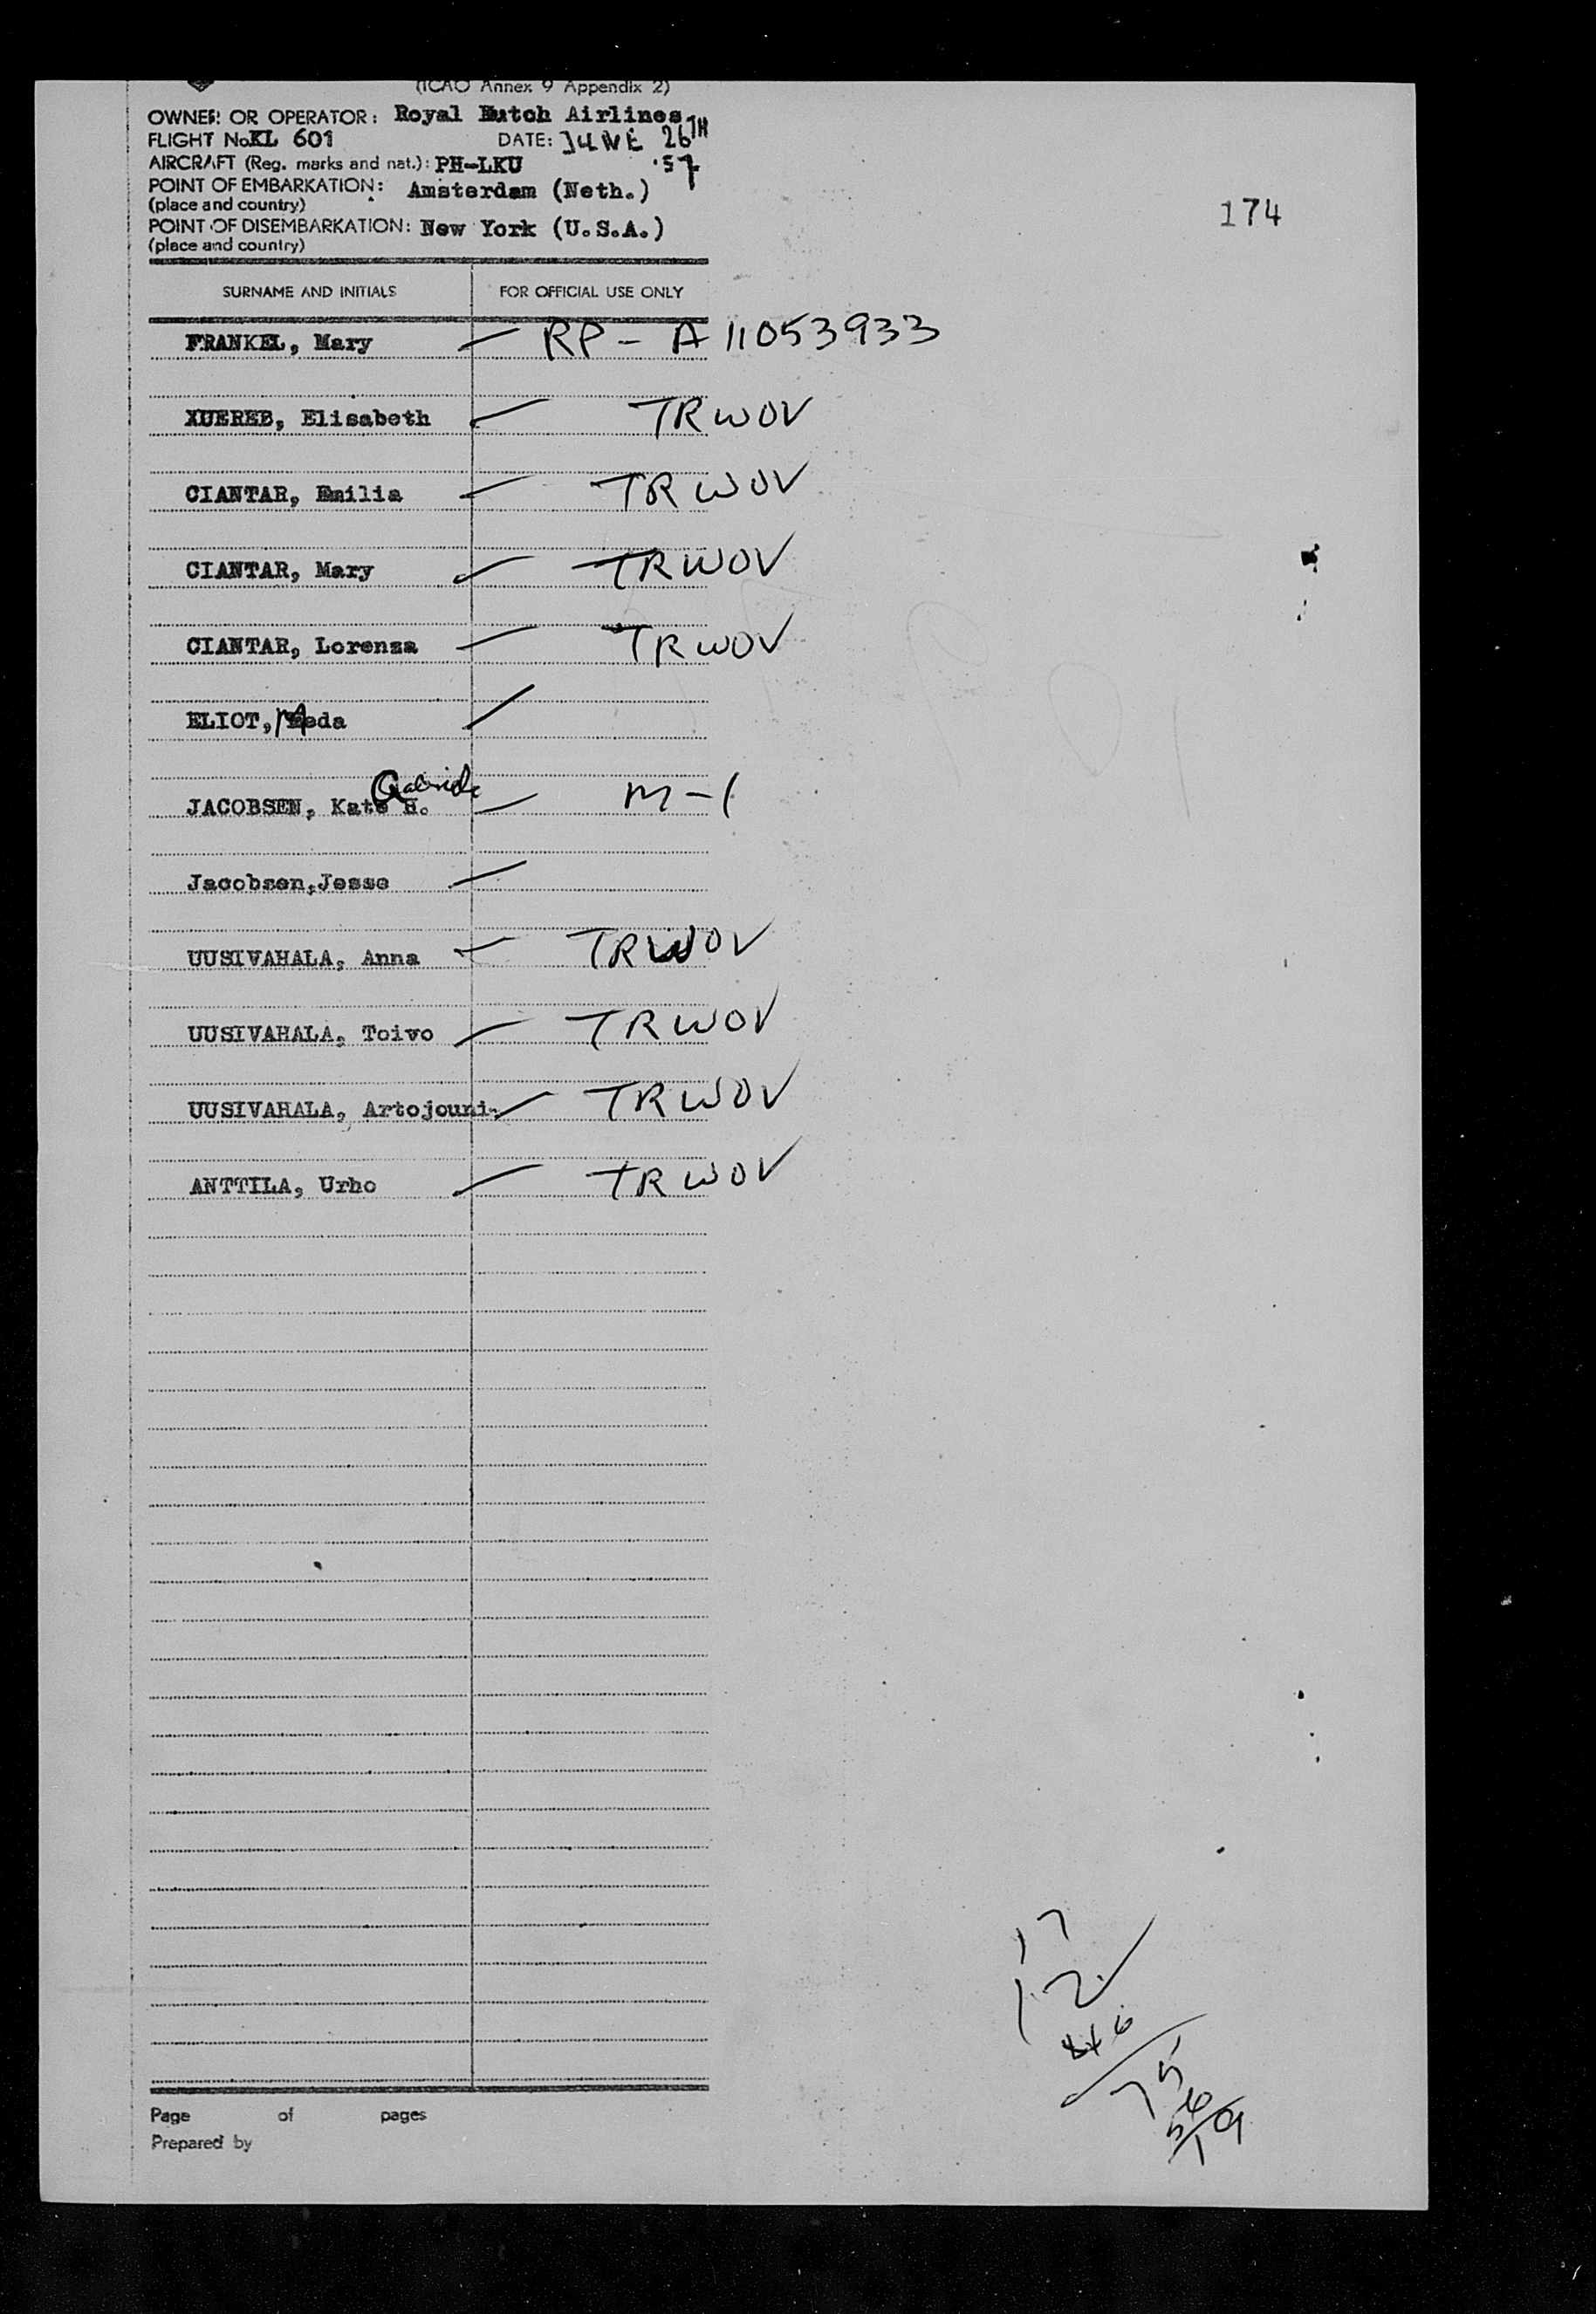 (ICAO Annex 9 Appendix 2)
OWNER OR OPERATOR: Royal Dutch Airlines
FLIGHT No. KL 601 DATE: JUNE 26TH
AIRCRAFT (Reg. marks and nat.): PH-LKU '57
POINT OF EMBARKATION: Amsterdam (Neth.)
(place and country)
174
POINT OF DISEMBARKATION: New York (U.S.A.)
(place and country)
SURNAME AND INITIALS FOR OFFICIAL USE ONLY
FRANKEL, Mary RP - A 11053933
XUEREB, Elisabeth TRWOV
CIANTAR, Emilia TRWOV
CIANTAR, Mary TRWOV
CIANTAR, Lorenza TRWOV
ELIOT,
Gabriele
JACOBSEN, Kate H. M-1
Jacobsen,Jesse
UUSIVAHALA, Anna TRWOV
UUSIVAHALA, Toivo TRWOV
UUSIVAHALA, Artojouni TRWOV
ANTTILA, Urho TRWOV
17
12
75
Page of pages
Prepared by